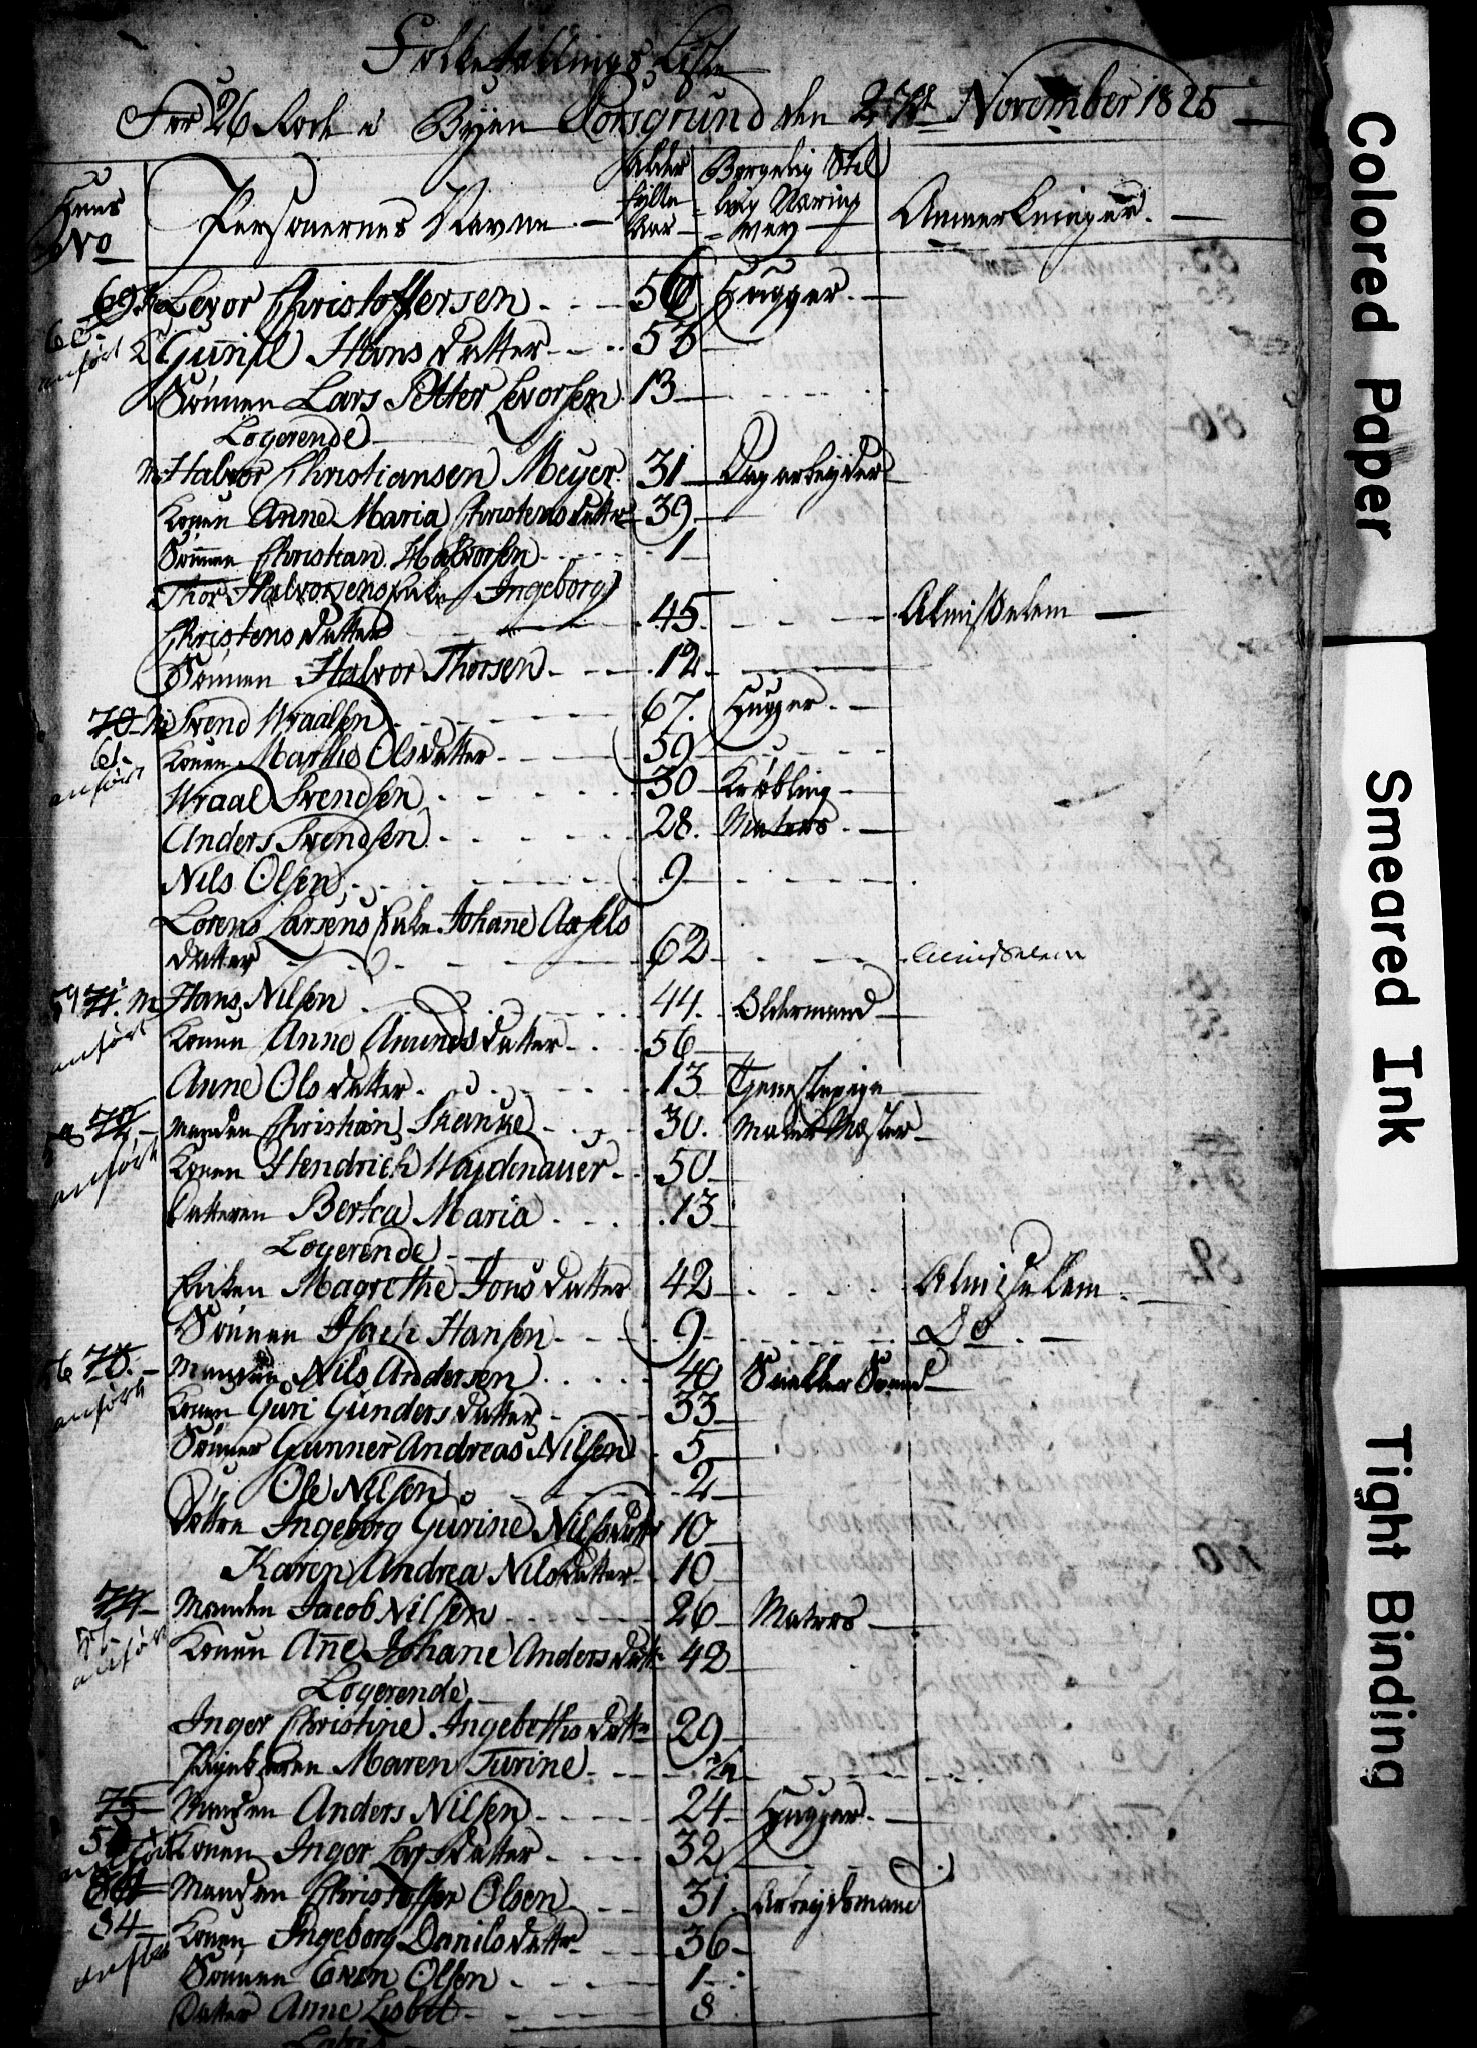 Folketellings Liste
For 26 Rode i Byen Porsgrund den 27de November 1825
Huus No Personernes Navne Alder fylte Aar Borgelig Stilling Næringsvey Anmerkninger
69 Levor Christoffersen 56 Hugger
60 anført Gunnil Hans Datter 53
Sønnen Lars Petter Levorsen 13
Logerende
Halvor Christiansen Meyer 31 Dagarbeyder
Konen Anne Maria Christensdatter 39
Sønnen Christian Halvorsen 1
Thor Halvorsens Enke Ingeborg
Christens Datter 45 Almisselem
Sønnen Halvor Thorsen 12
70 Svend Wraalsen 67 Hugger
61 anført Konen Marthe Olsdatter 59
Wraal Svendsen 30 Krøbling
Anders Svendsen 28 Matros
Nils Olsen 9
Lorens Larsens Enke Johanne Axels
datter 62 Almisselem
59 71 Hans Nilsen 44 Oldermand
anført Konen Anne Amunds datter 56
Anne Ols datter 13 Tjenestepige
72 Manden Christian Skanke 30 Maler Mester
anført Konen Hendrich Wajdenauer 50
Datteren Bertea Maria 13
Logerende
Enken Magrethe Jons datter 42 Almisselem
Sønnen Isach Hansen 9 Do
Manden Nils Andersen 40 Snekker Svend
anført Konen Guri Gunders datter 33
Sønner Gunner Andreas Nilsen 5
Ole Nilsen 2
Døttre Ingeborg Gurine Nilsdatt 10
Karen Andrea Nilsdatter 10
74 Manden Jacob Nilsen 26 Matros
anført Konen Anne Johane Andersdatt 42
Logerende
Inger Christine Ingebethsdatter 29
Maren Turine
75 Manden Anders Nilsen 24 Hugger
anført Konen Inger Larsdatter 32
Manden Christoffer Olsen 31 Arbeydsmand
84 Konen Ingeborg Danilsdatter 36
anført
Sønnen Even Olsen 1
Datter Anne Lisbet 8
Colored Paper
Smeared Ink
Tight Binding